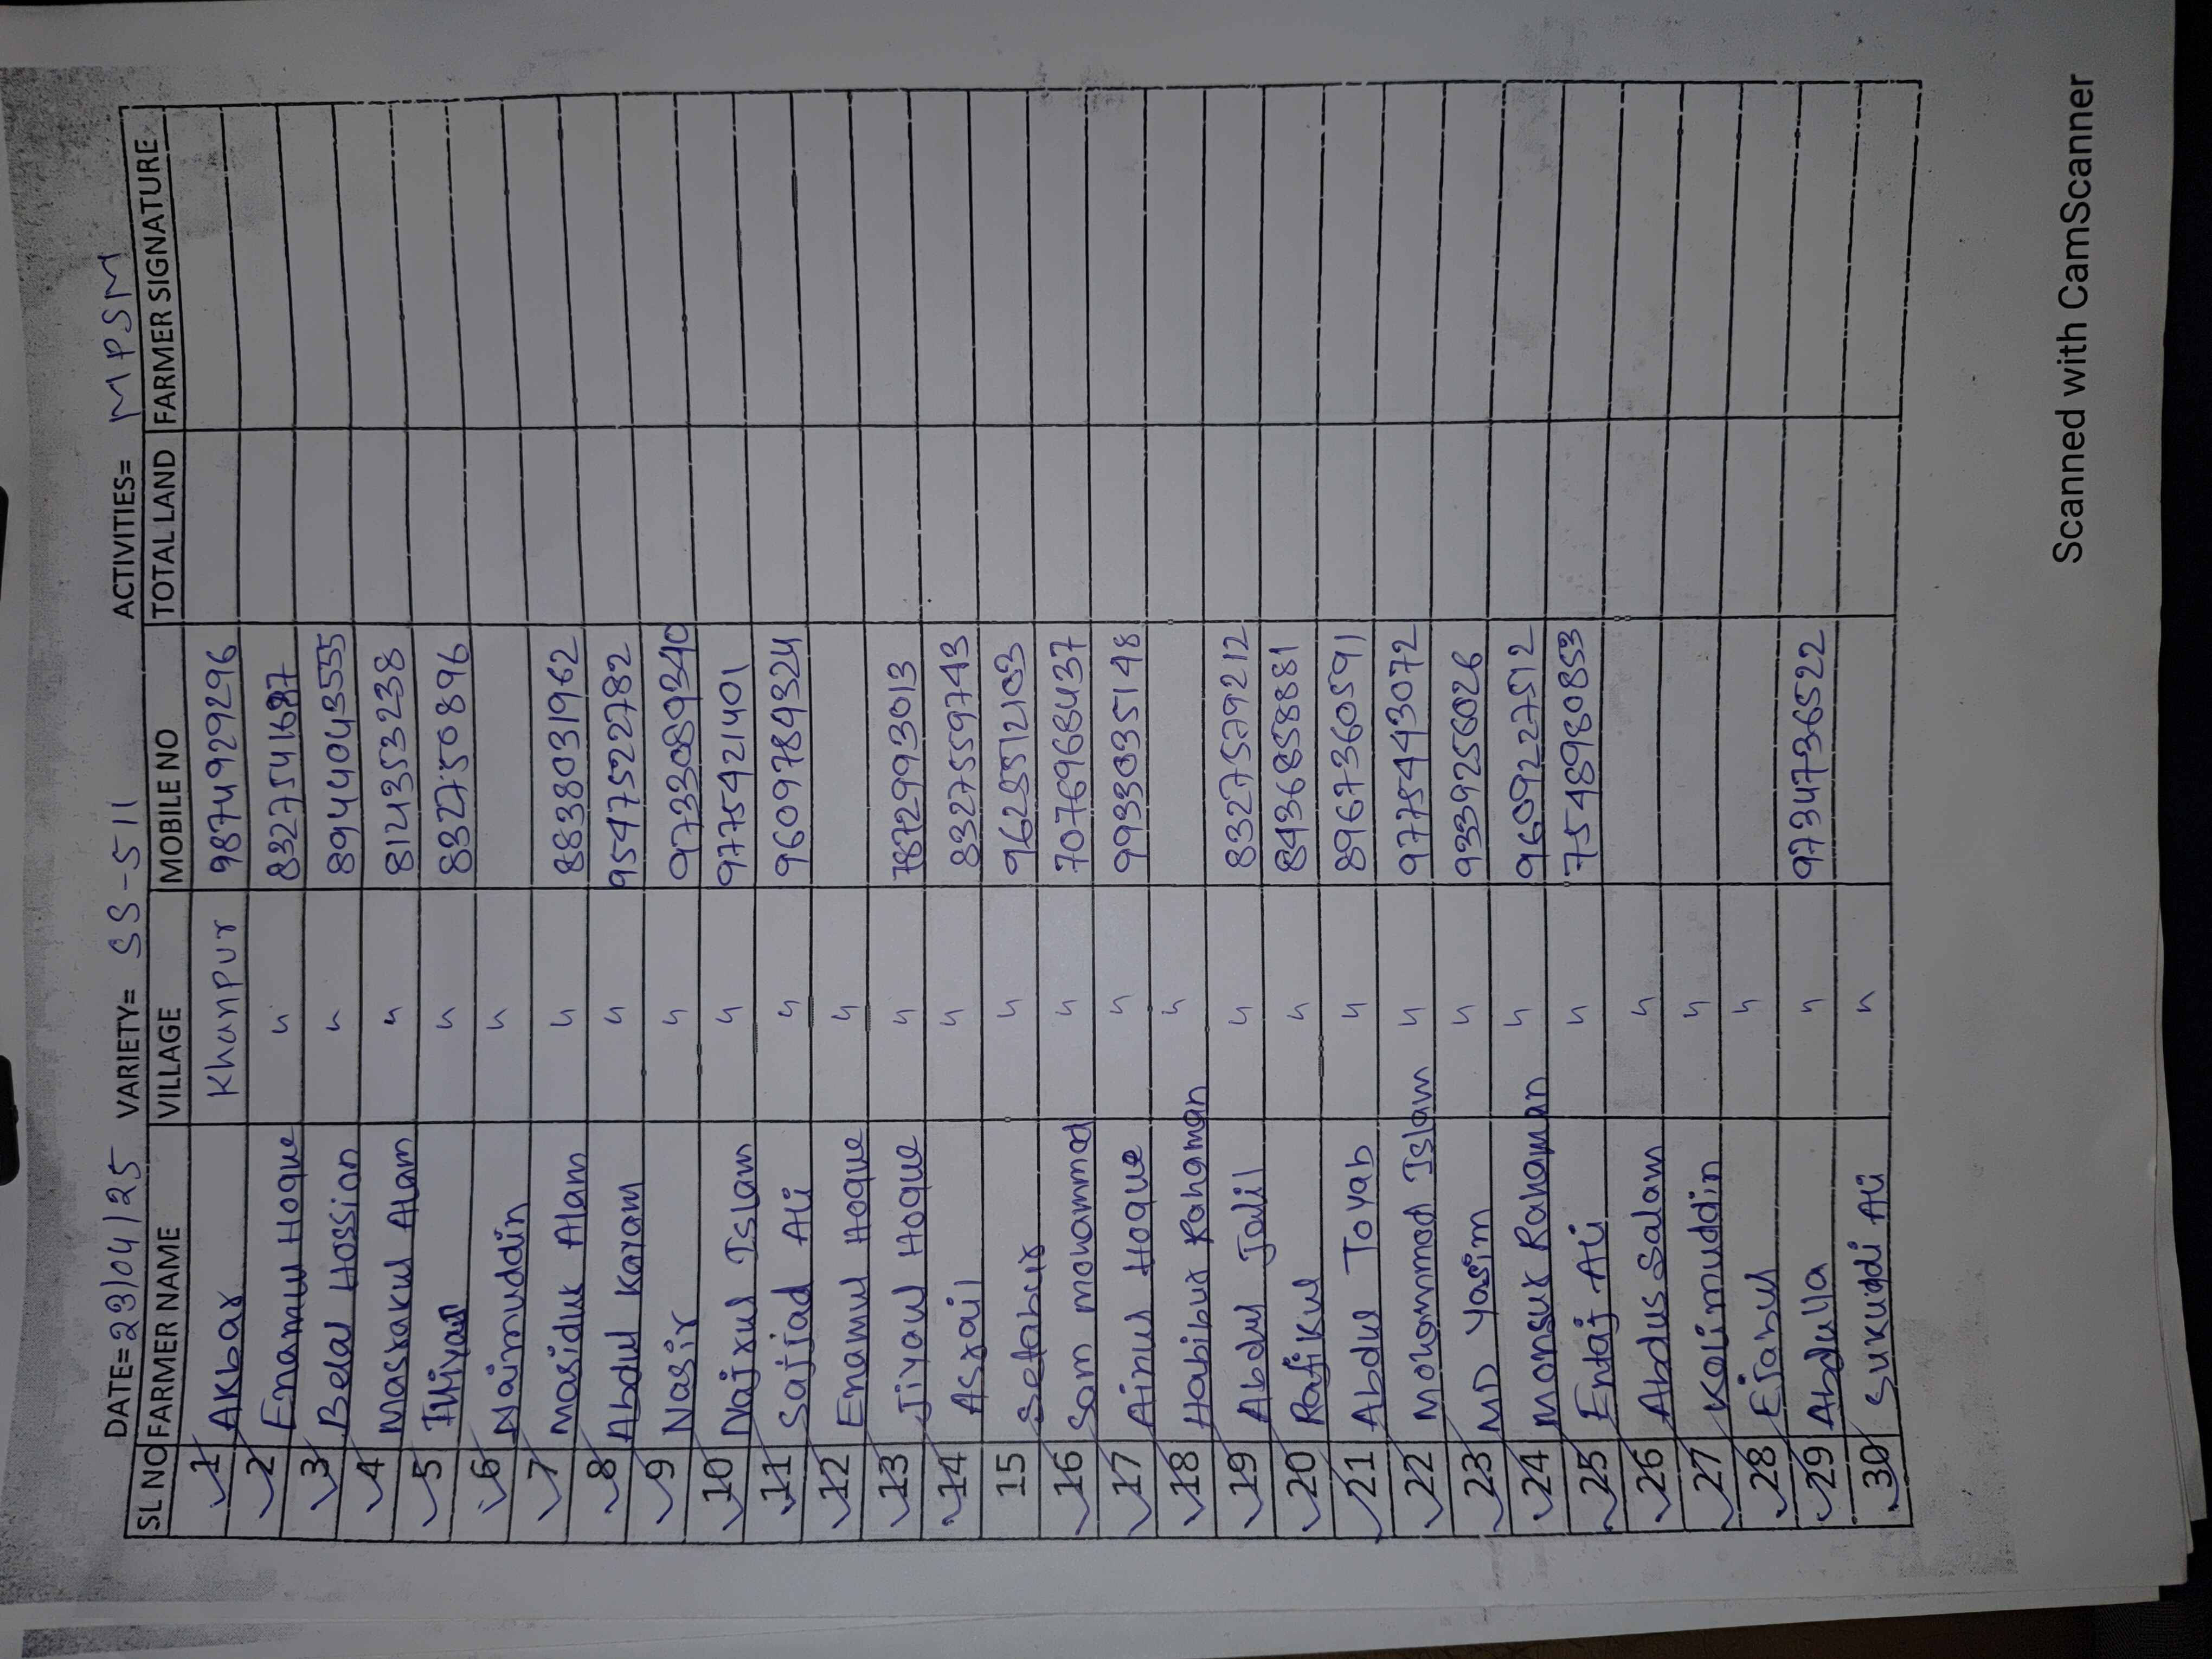 DATE= 23/04/25 VARIETY= SS-511 ACTIVITIES= MPSM
SL NO FARMER NAME VILLAGE MOBILE NO TOTAL LAND FARMER SIGNATURE
1 Akbar Khanpur 9874929296
2 Enamul Hoque " 8327541687
3 Belal Hossion " 8944043555
4 Masrakul Alam " 8124353238
5 Iliyas " 8327508896
6 Naimuddin "
7 Masidur Alam " 8838031962
8 Abdul Karam " 9547522782
9 Nasir " 9733089340
10 Najrul Islam " 9775421401
11 Sajjad Ali " 9609784324
12 Enamul Hoque "
13 Jiyaul Hoque " 7872993013
14 Asrail " 8327559743
15 Setabur " 9628572103
16 Sam mohammad " 7076968437
17 Ainul Hoque " 9933035148
18 Habibur Rahaman "
19 Abdul Jalil " 8327579212
20 Rafikul " 8436858881
21 Abdul Toyab " 8967360591
22 Mohammad Islam " 9775443072
23 MD Yasim " 9339256026
24 Monsur Rahaman " 9609227512
25 Entaj Ali " 7548980853
26 Abdus Salam "
27 Kalimuddin "
28 Ejabul "
29 Abdulla " 9734736522
30 Sukuddi Ali "
Scanned with CamScanner